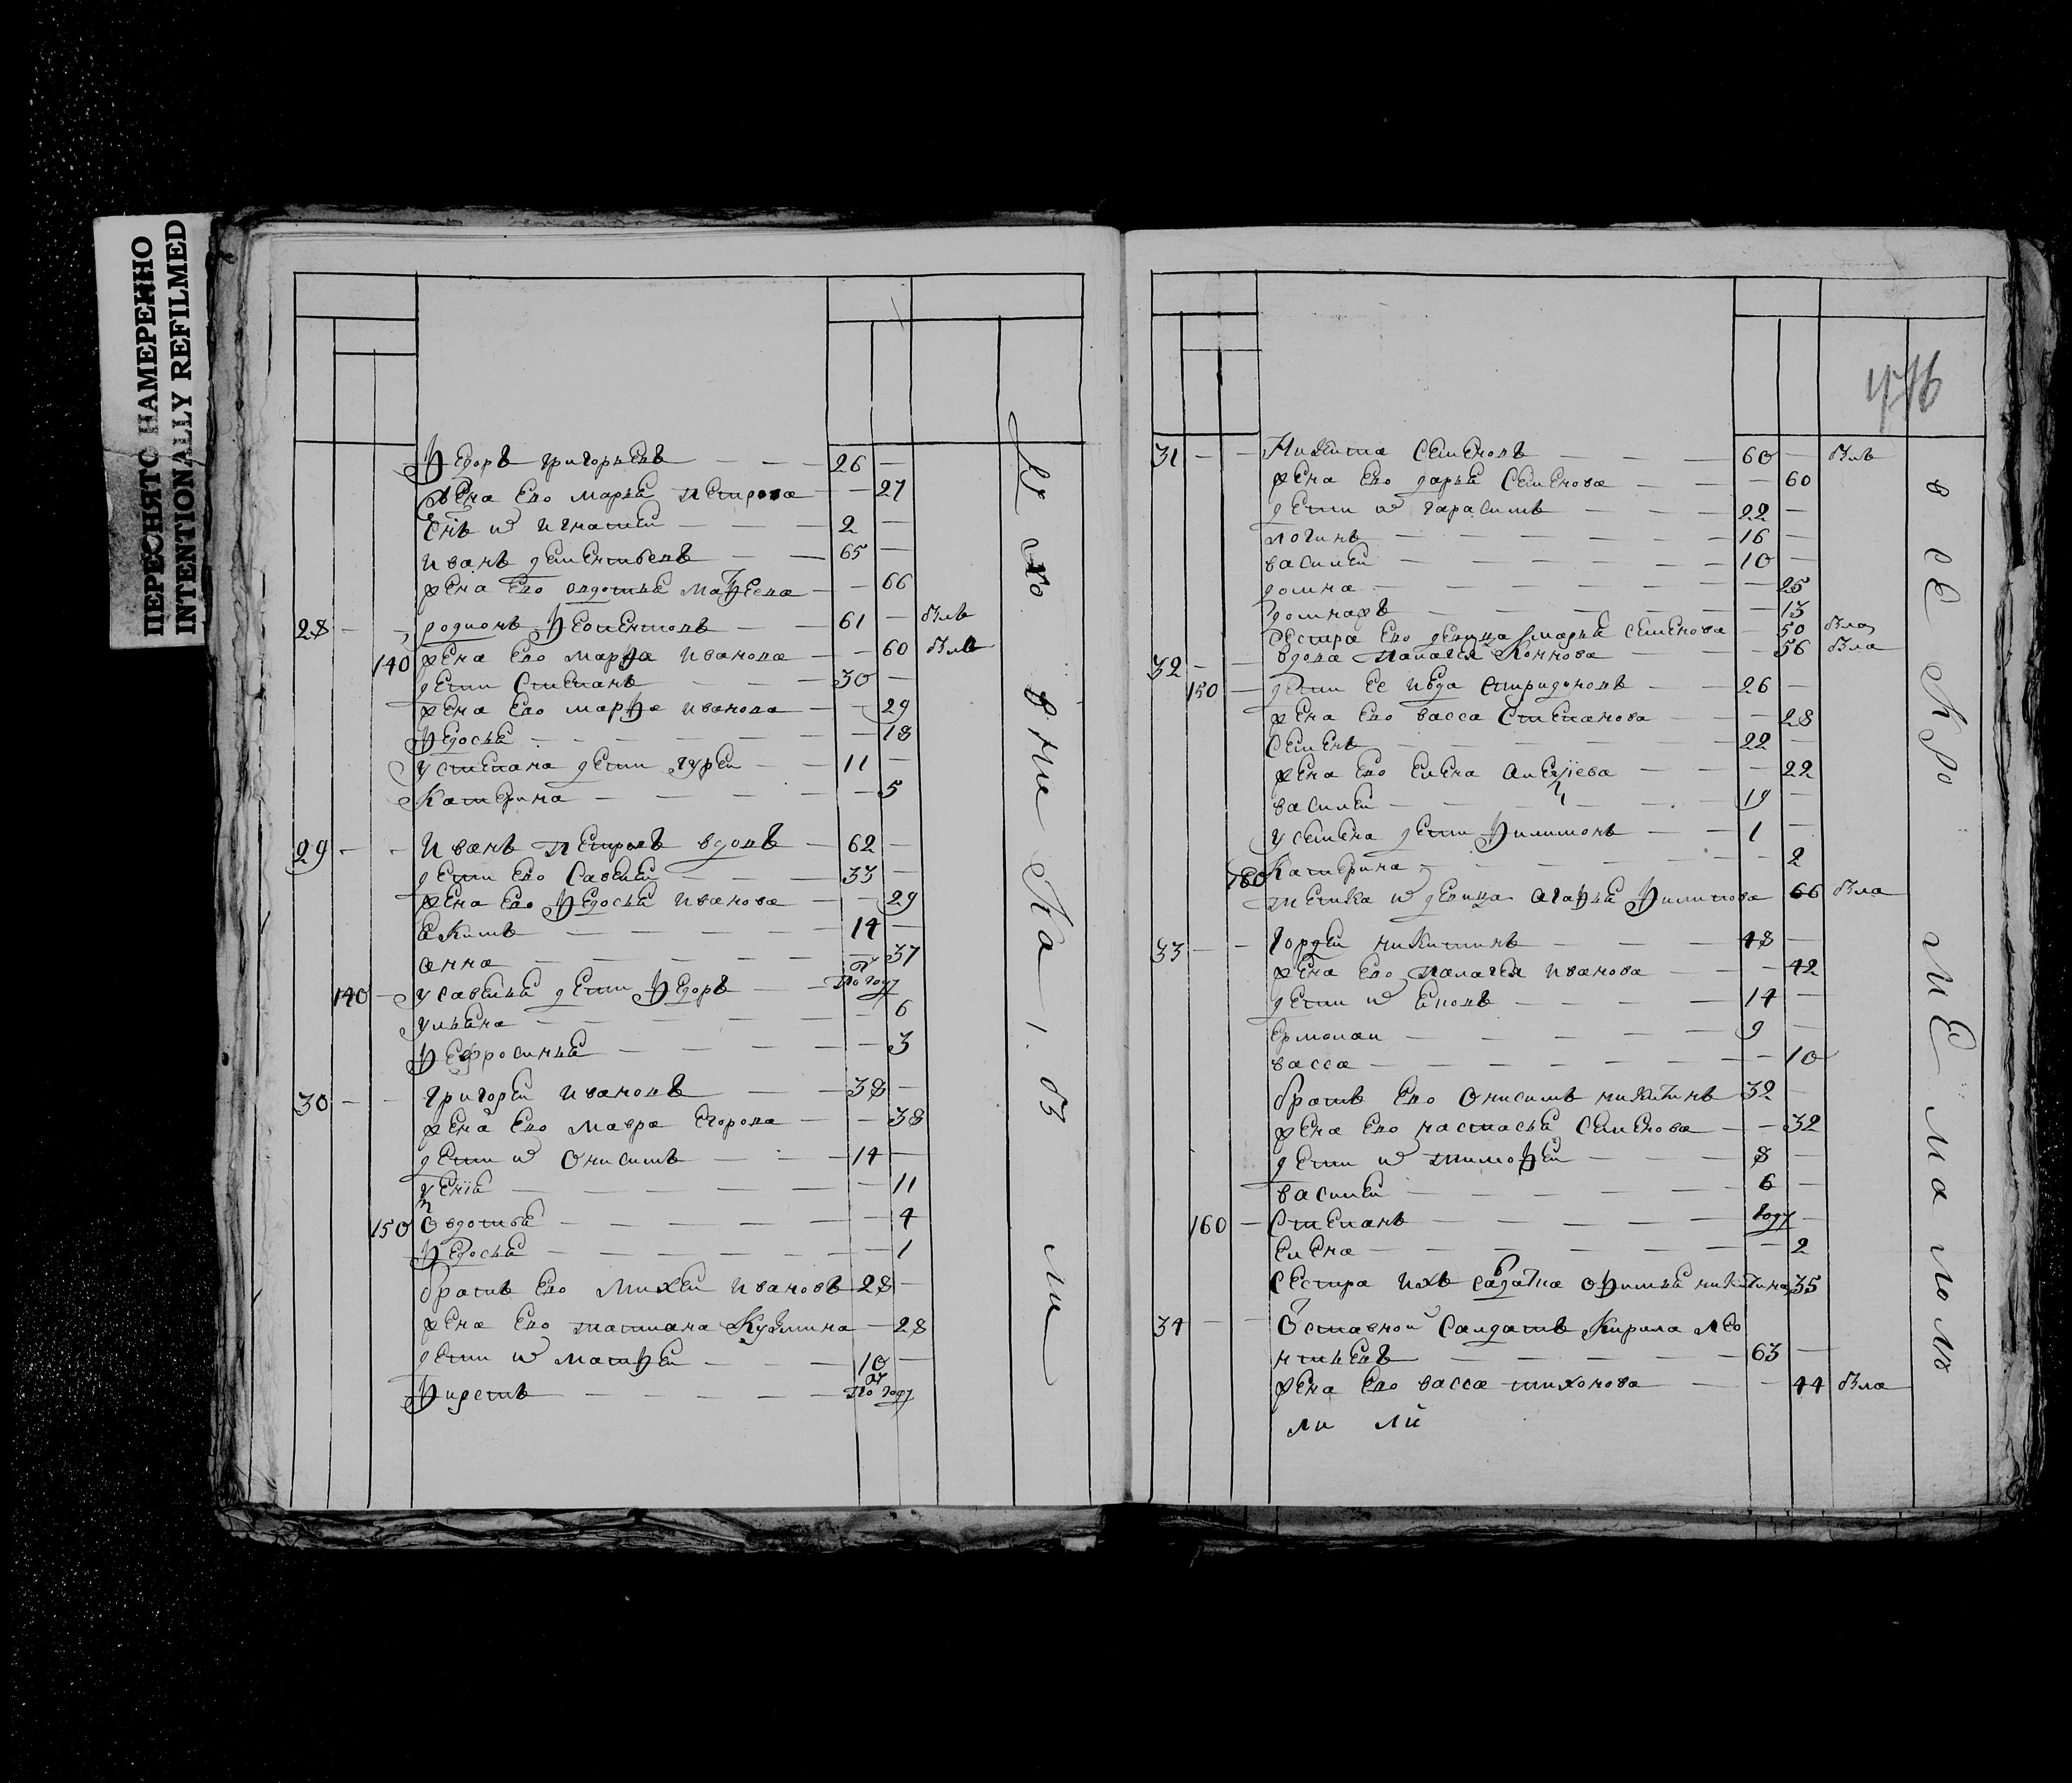 ПЕРЕСНЯТО НАМЕРЕННО
INTENTIONALLY REFILMED
Ѳедоръ григорьевъ 26
жена ево марья петрова 27
сѣнъ игнатей 2
иванъ дементьевъ 65
жена ево овдотья маѳеева 66
28 родионъ Ѳеоментовъ 61 былъ
140 жена ево марѳа иванова 60 была
дети Степанъ 30
жена ево марѳа иванова 29
Ѳедосья 18
у степана дети гурей 11
Катерина 5
29 Иванъ петровъ вдовъ 62
дети ево Савелей 33
жена ево Ѳедосья иванова 29
Екимъ 14
анна 37
140 у савелья дети Ѳедоръ по году
ульяна 6
Ѳефросинья 3
30 григорей ивановъ 38
жена ево мавра Егорова 38
дети Онисимъ 14
11
150 Овдотья 4
Ѳедосья 1
братъ ево Михей ивановъ 28
жена ево татиана Кузмина 28
дети матѳей 10
Ѳирстъ по году
31 Никита Семеновъ 60 былъ
жена ево дарья Семенова 60
дети гарасимъ 22
логинъ 16
василей 10
домна 25
домнажъ 13
сестра ево девица марья семенова 50 была
32 вдова палагея Кононова 56 была
150 дети ее Спиридоновъ 26
жена ево васса Степанова 28
Семенъ 22
жена ево Елена алексиева 22
василей 19
у семена дети Ѳилимонъ 1
160 Катерина 2
тетка девица агаѳья Ѳилипова 66 была
33 гордей никитинъ 48
жена ево палагея иванова 42
дети 14
ермолаи 9
васса 10
братъ ево Онисимъ никитинъ 32
жена ево настасья Семенова 32
дети тимоѳей 8
василей 6
160 Степанъ году
Елена 2
Сестра ихъ салдатка оѳимья никитина 35
34 Оставной Салдатъ Кирила лео
нтьевъ 63
жена ево васса тихонова 44 была